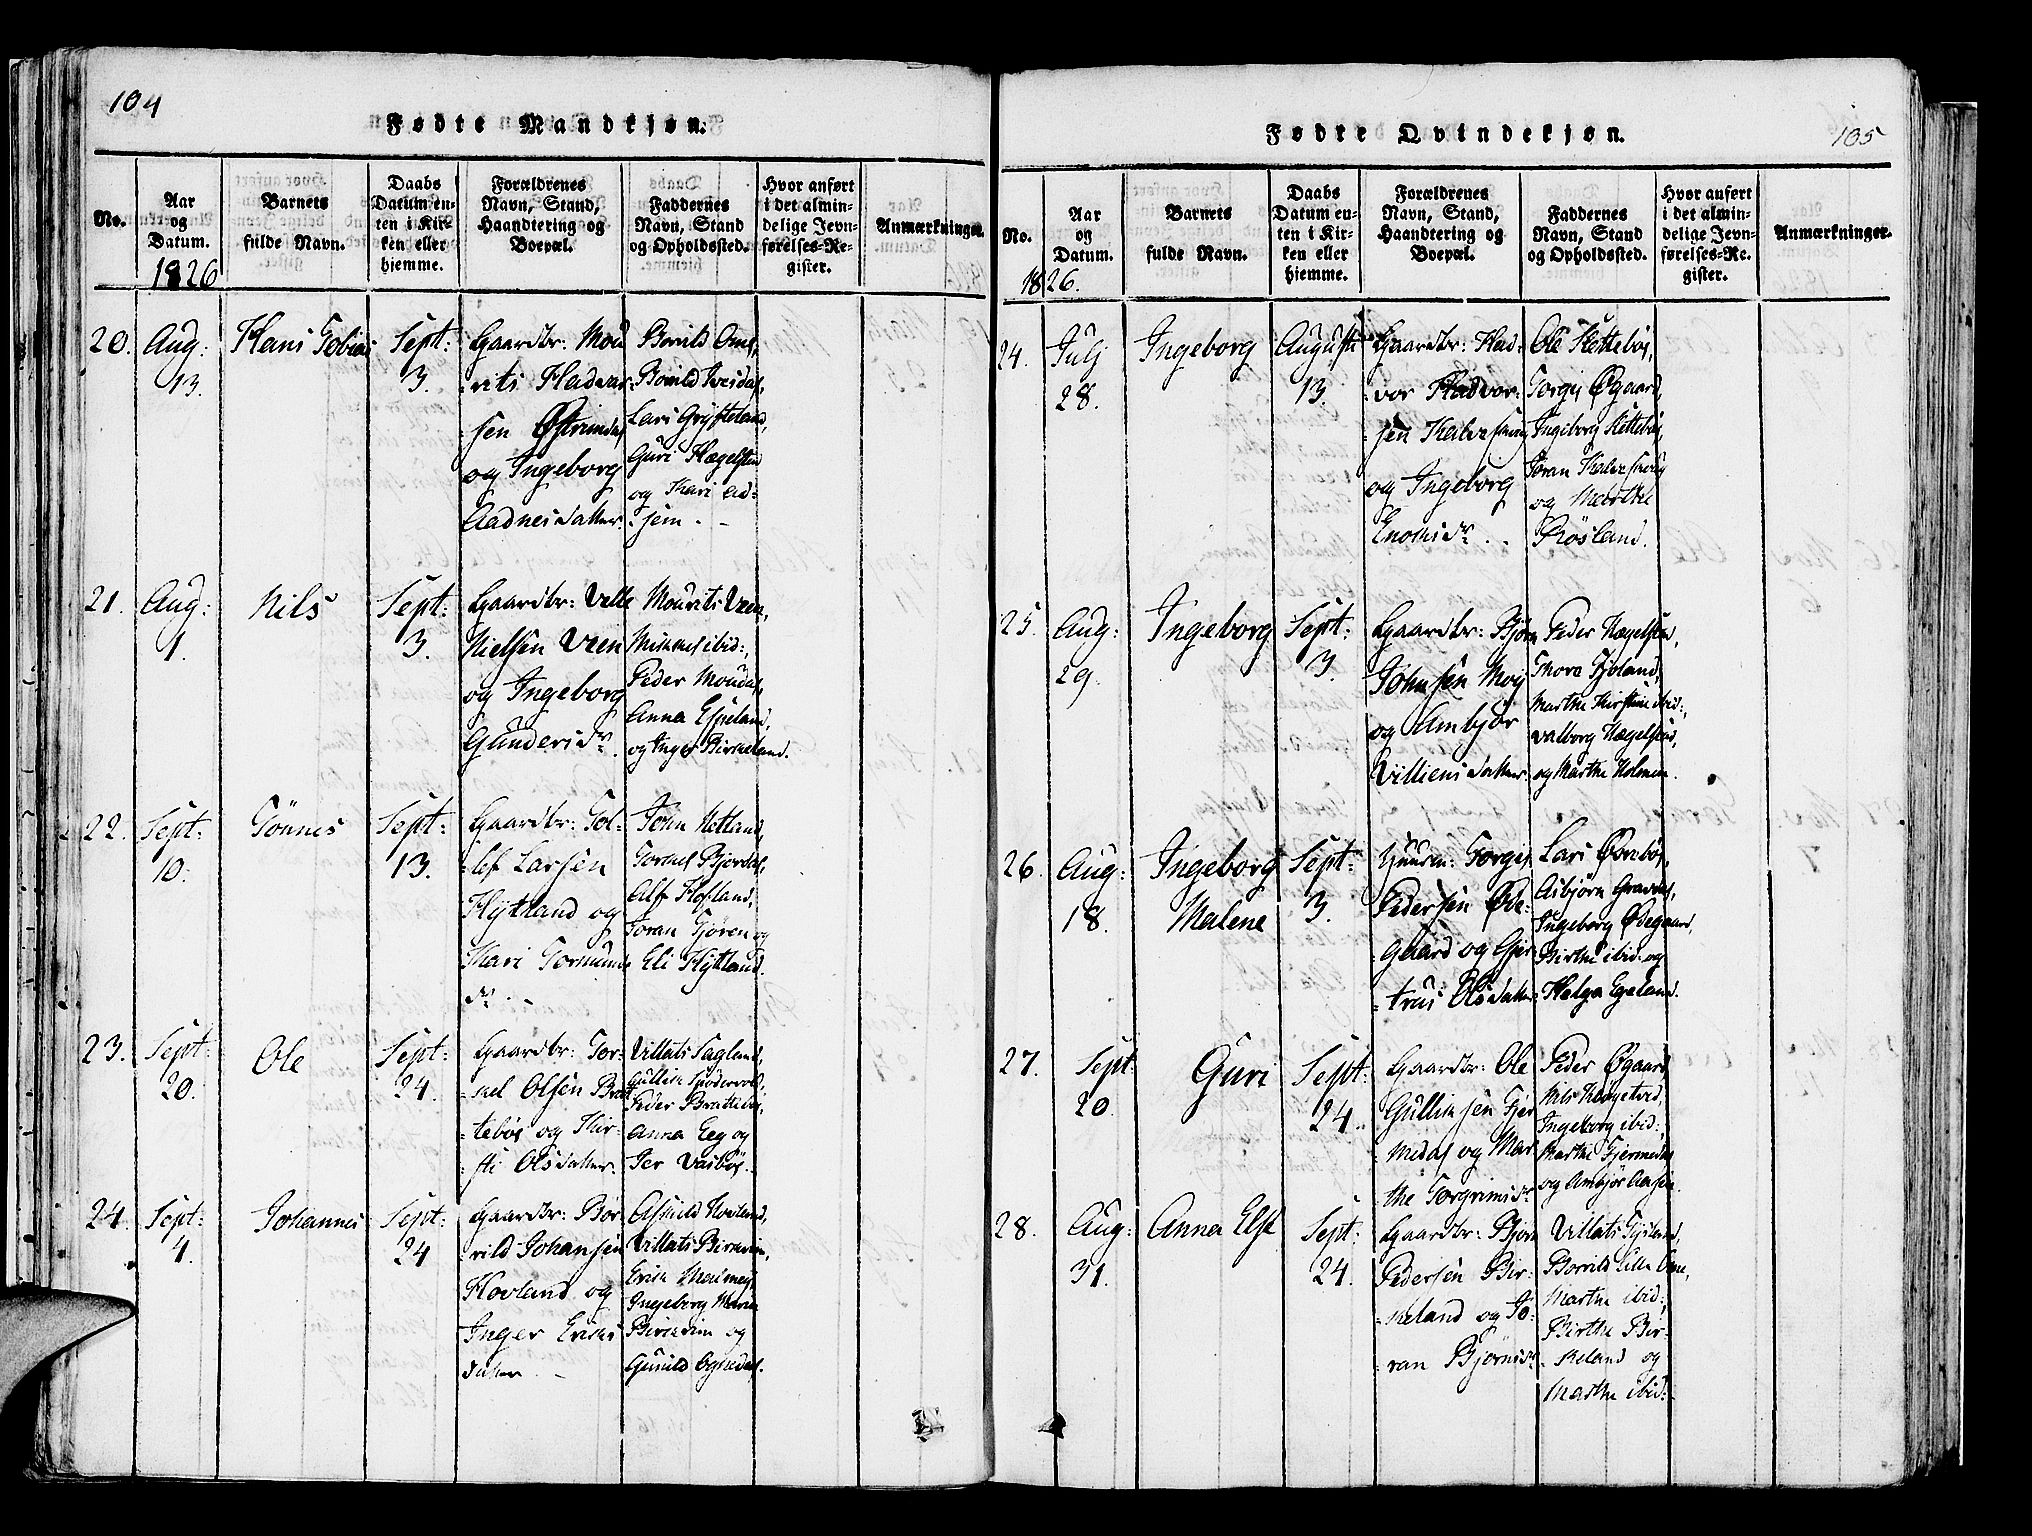 104
Fødte Mandkjøn.
No.
Aar
og
Datum.
1826
Barnets
fulde Navn.
Daabs
Datum en-
ten i Kir-
ken eller
hjemme.
Forældrenes
Navn, Stand,
Haandtering og
Boepæl.
Faddernes
Navn, Stand
og Opholdssted.
Hvor anført
i det almin-
delige Jevn-
førelses-Re-
gister.
Anmærkninger.
20.
Aug:
13.
Hans Tobias
Sept:
3.
Gaardbr: Mou
-rits Hadvar-
-sen
og Ingeborg
Aadnesdatter.
Borild Omd,
Borild Ivesdal,
Lars Gryteland,
Guri Hægelstad
og Kari Ad-
-sem.
21.
Aug:
1.
Nils
Sept:
3.
Gaardbr: Velle
Nielsen Veen
og Ingeborg
Gunders Dr.
Mourits Veen,
ibid:,
Peder Moudal,
Anna Espeland,
og Inger Birkeland.
22.
Sept:
10.
Tönnes
Sept:
13.
Gaardbr: Tol-
-lef Larsen
Hytland og
Kari Tormunds
Dr.
John Netland,
Torkel Bjordal,
Alf Hofland,
Joran Tjören og
Eli Hytland.
23.
Sept:
20.
Ole
Sept:
24.
Gaardbr: Tor-
-kel Olsen Brat
-tebøe og Kir-
-sti Olsdatter.
Villats Sagland,
Gullik
Peder Bratteboe,
Anna Eeg og
Ier Vasböe.
24.
Sept:
4.
Johannes
Sept:
24
Gaardbr: Bor
-rild Johansen
Hovland og
Inger Eriks
datter.
Asskild Hovland,
Villats Birkrim,
Erik
Ingeborg Maria
Birkrim og
Gunild Ognedal.
Fødte Qvindekjøn.
105
No.
Aar
og
Datum.
1826.
Barnets
fulde Navn.
Daabs
Datum en-
ten i Kir-
ken eller
hjemme.
Forældrenes
Navn, Stand,
Haandtering og
Boepæl.
Faddernes
Navn, Stand
og Opholdssted.
Hvor anført
i det almin-
delige Jevn-
førelses-Re-
gister.
Anmærkninger.
24.
Julj
28.
Ingeborg
Augusti
13.
Gaardbr: Had-
-vor Hadvor-
-sen
og Ingeborg
Enoks Dr.
Ole Slettebøe,
Torgis Øgaard,
Ingeborg Slettebøe,
Joran
og Marthe
Røsland.
25.
Aug:
29.
Ingeborg
Sept:
3.
Gaardbr: Bjørn
Johnsen Moj
og Ambjör
Villiensdatter.
Peder Hægelstad,
Thore Fjoland,
Marthe Kirstine ibid:,
Valborg Hægelstad,
og Marthe Holmen.
26.
Aug:
18.
Ingeborg
Malene
Sept:
3.
Huusm: Torgis
Pedersen Øde-
-gaard og Gjer
-trus Olsdatter
Lars Ørebøe,
Asbjörn Gravdal,
Ingeborg Ødegaard,
Birthe ibid: og
Helga Egeland.
27.
Sept:
20.
Guri
Sept:
24.
Gaardbr: Ole
Gulliksen Fjer
-medal og Mar
the Torgrims Dr
Peder Øgaard,
Nils
Ingeborg ibid:,
Marthe Fjermedal
og Ambjör Aasen.
28.
Aug:
31.
Anna Else
Sept:
24.
Gaardbr: Bjørn
Pedersen Bir-
-keland og Jo-
-ran Bjørns Dr.
Villats Tjsland,
Borrild Lille Omd,
Marthe ibid:,
Birthe Bir-
-keland og
Marthe ibid: